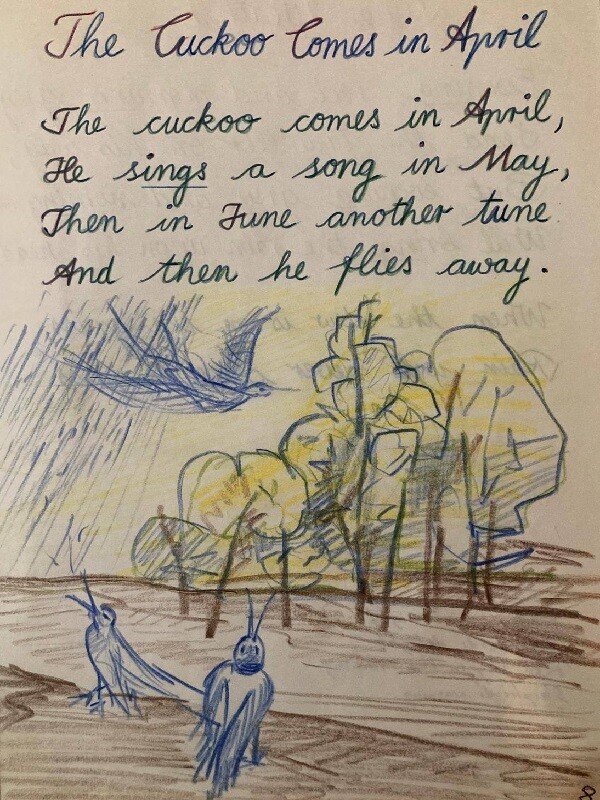 The Cuckoo Comes in April
The cuckoo comes in April,
He sings a song in May,
Then in June another tune
And then he flies away.
8